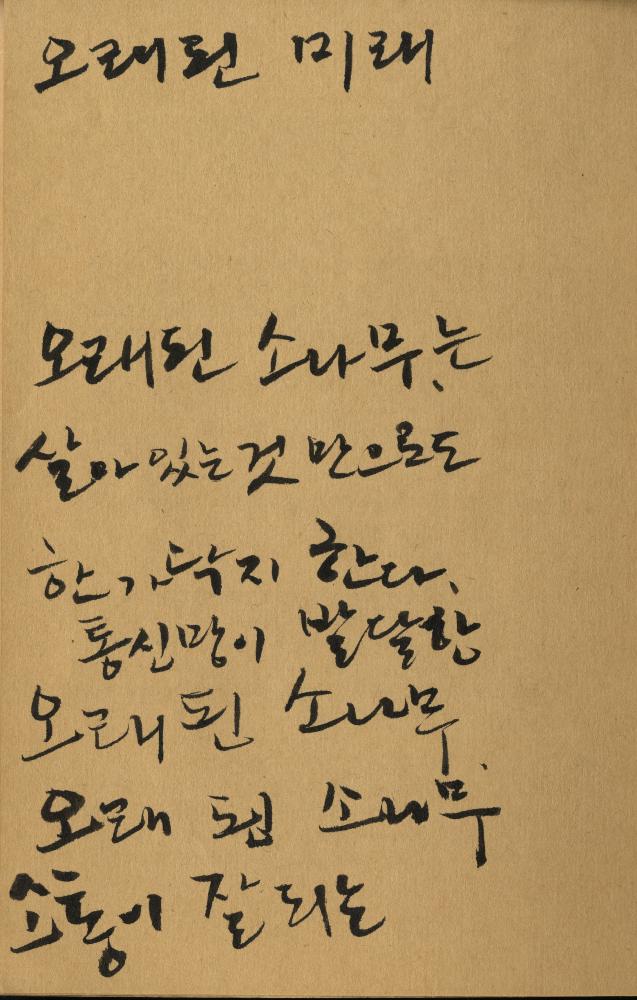 오래된 미래
오래된 소나무는
살아있는것 만으로도
한 가닥지 한다.
통신망이 발달한
오래된 소나무.
오래 된 소나무
소통이 잘 되는